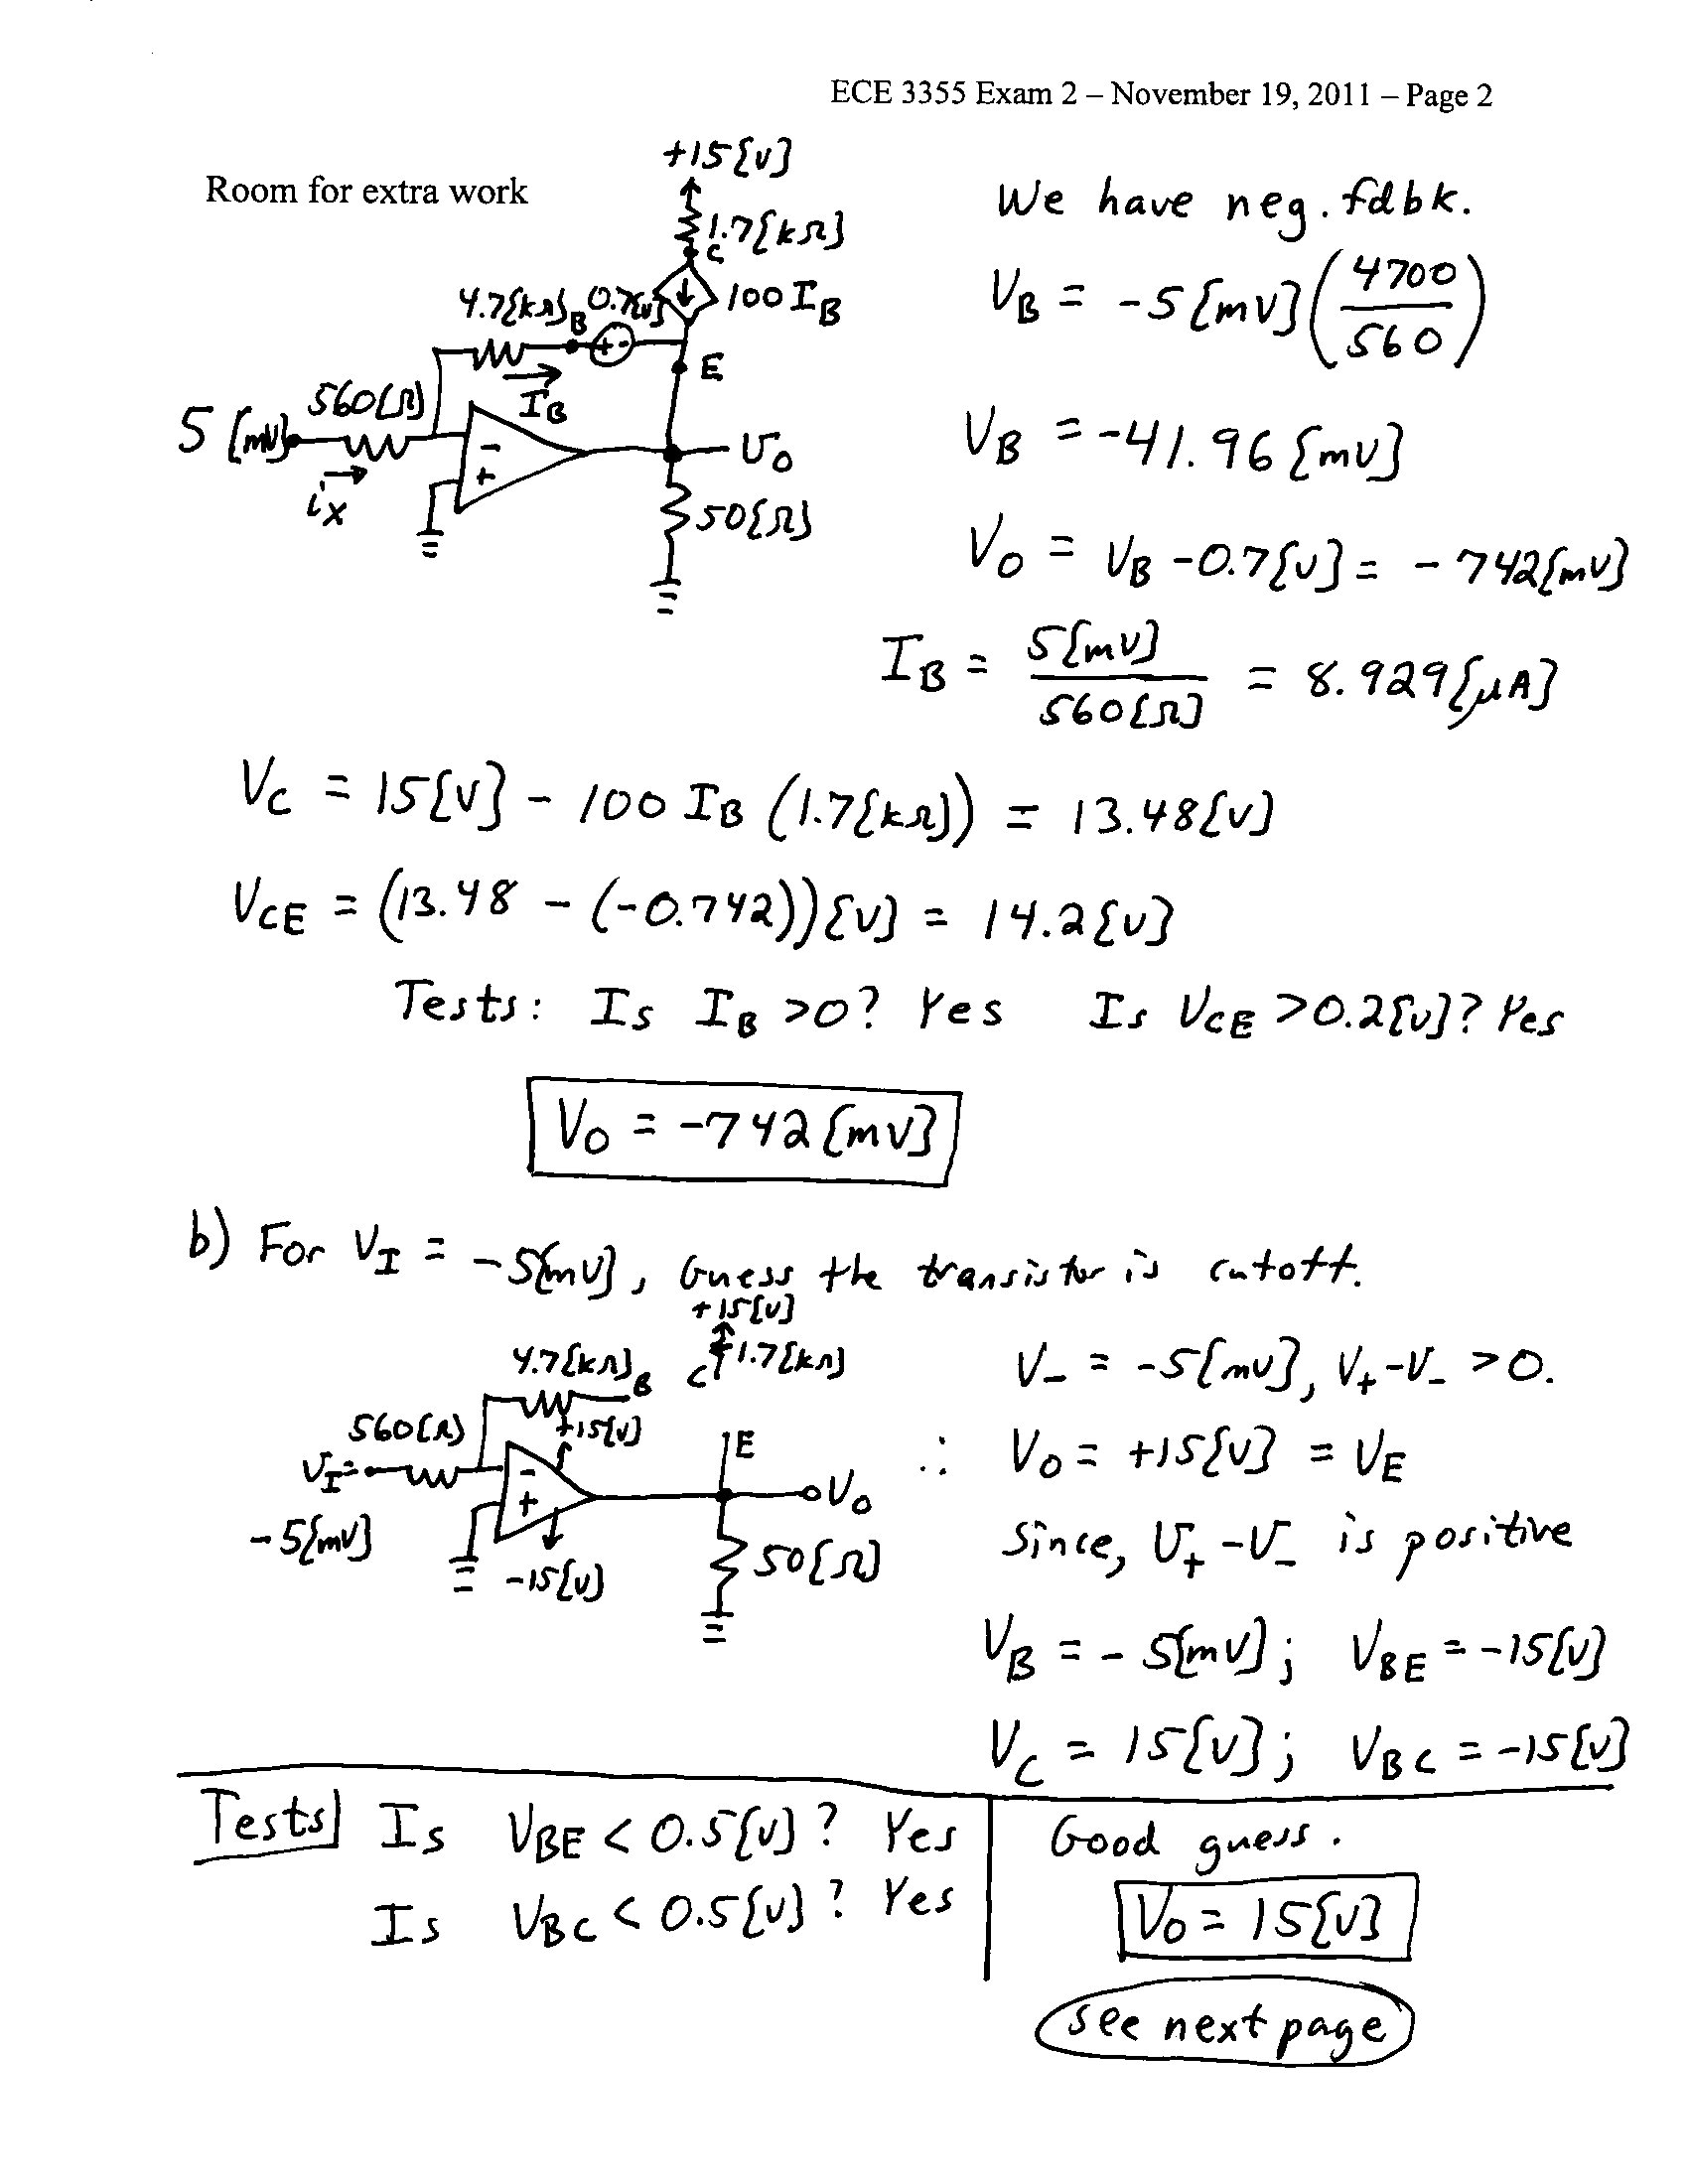 ECE 3355 Exam 2 – November 19, 2011 – Page 2
Room for extra work
+15[V]
1.7[kΩ]
C
4.7[kΩ] B 0.7[V] 100 I_B
E
I_B
560[Ω]
5 [mV]
-
+
v_O
i_X
50[Ω]
We have neg. fdbk.
V_B = -5[mV](4700/560)
V_B = -41.96[mV]
V_O = V_B - 0.7[V] = -742[mV]
I_B = 5[mV]/560[Ω] = 8.929[μA]
V_C = 15[V] - 100 I_B (1.7[kΩ]) = 13.48[V]
V_CE = (13.48 - (-0.742))[V] = 14.2[V]
Tests: Is I_B >0? Yes Is V_CE >0.2[V]? Yes
V_O = -742[mV]
b) For V_I = -5[mV], Guess the transistor is cutoff.
+15[V]
4.7[kΩ] B C 1.7[kΩ]
560[Ω]
+15[V]
E
V_I =
-
+
V_O
-5[mV]
-15[V]
50[Ω]
V_- = -5[mV], V_+ - V_- > 0.
∴ V_O = +15[V] = V_E
Since, V_+ - V_- is positive
V_B = -5[mV]; V_BE = -15[V]
V_C = 15[V]; V_BC = -15[V]
Tests Is V_BE < 0.5[V]? Yes
Is V_BC < 0.5[V]? Yes
Good guess.
V_O = 15[V]
See next page